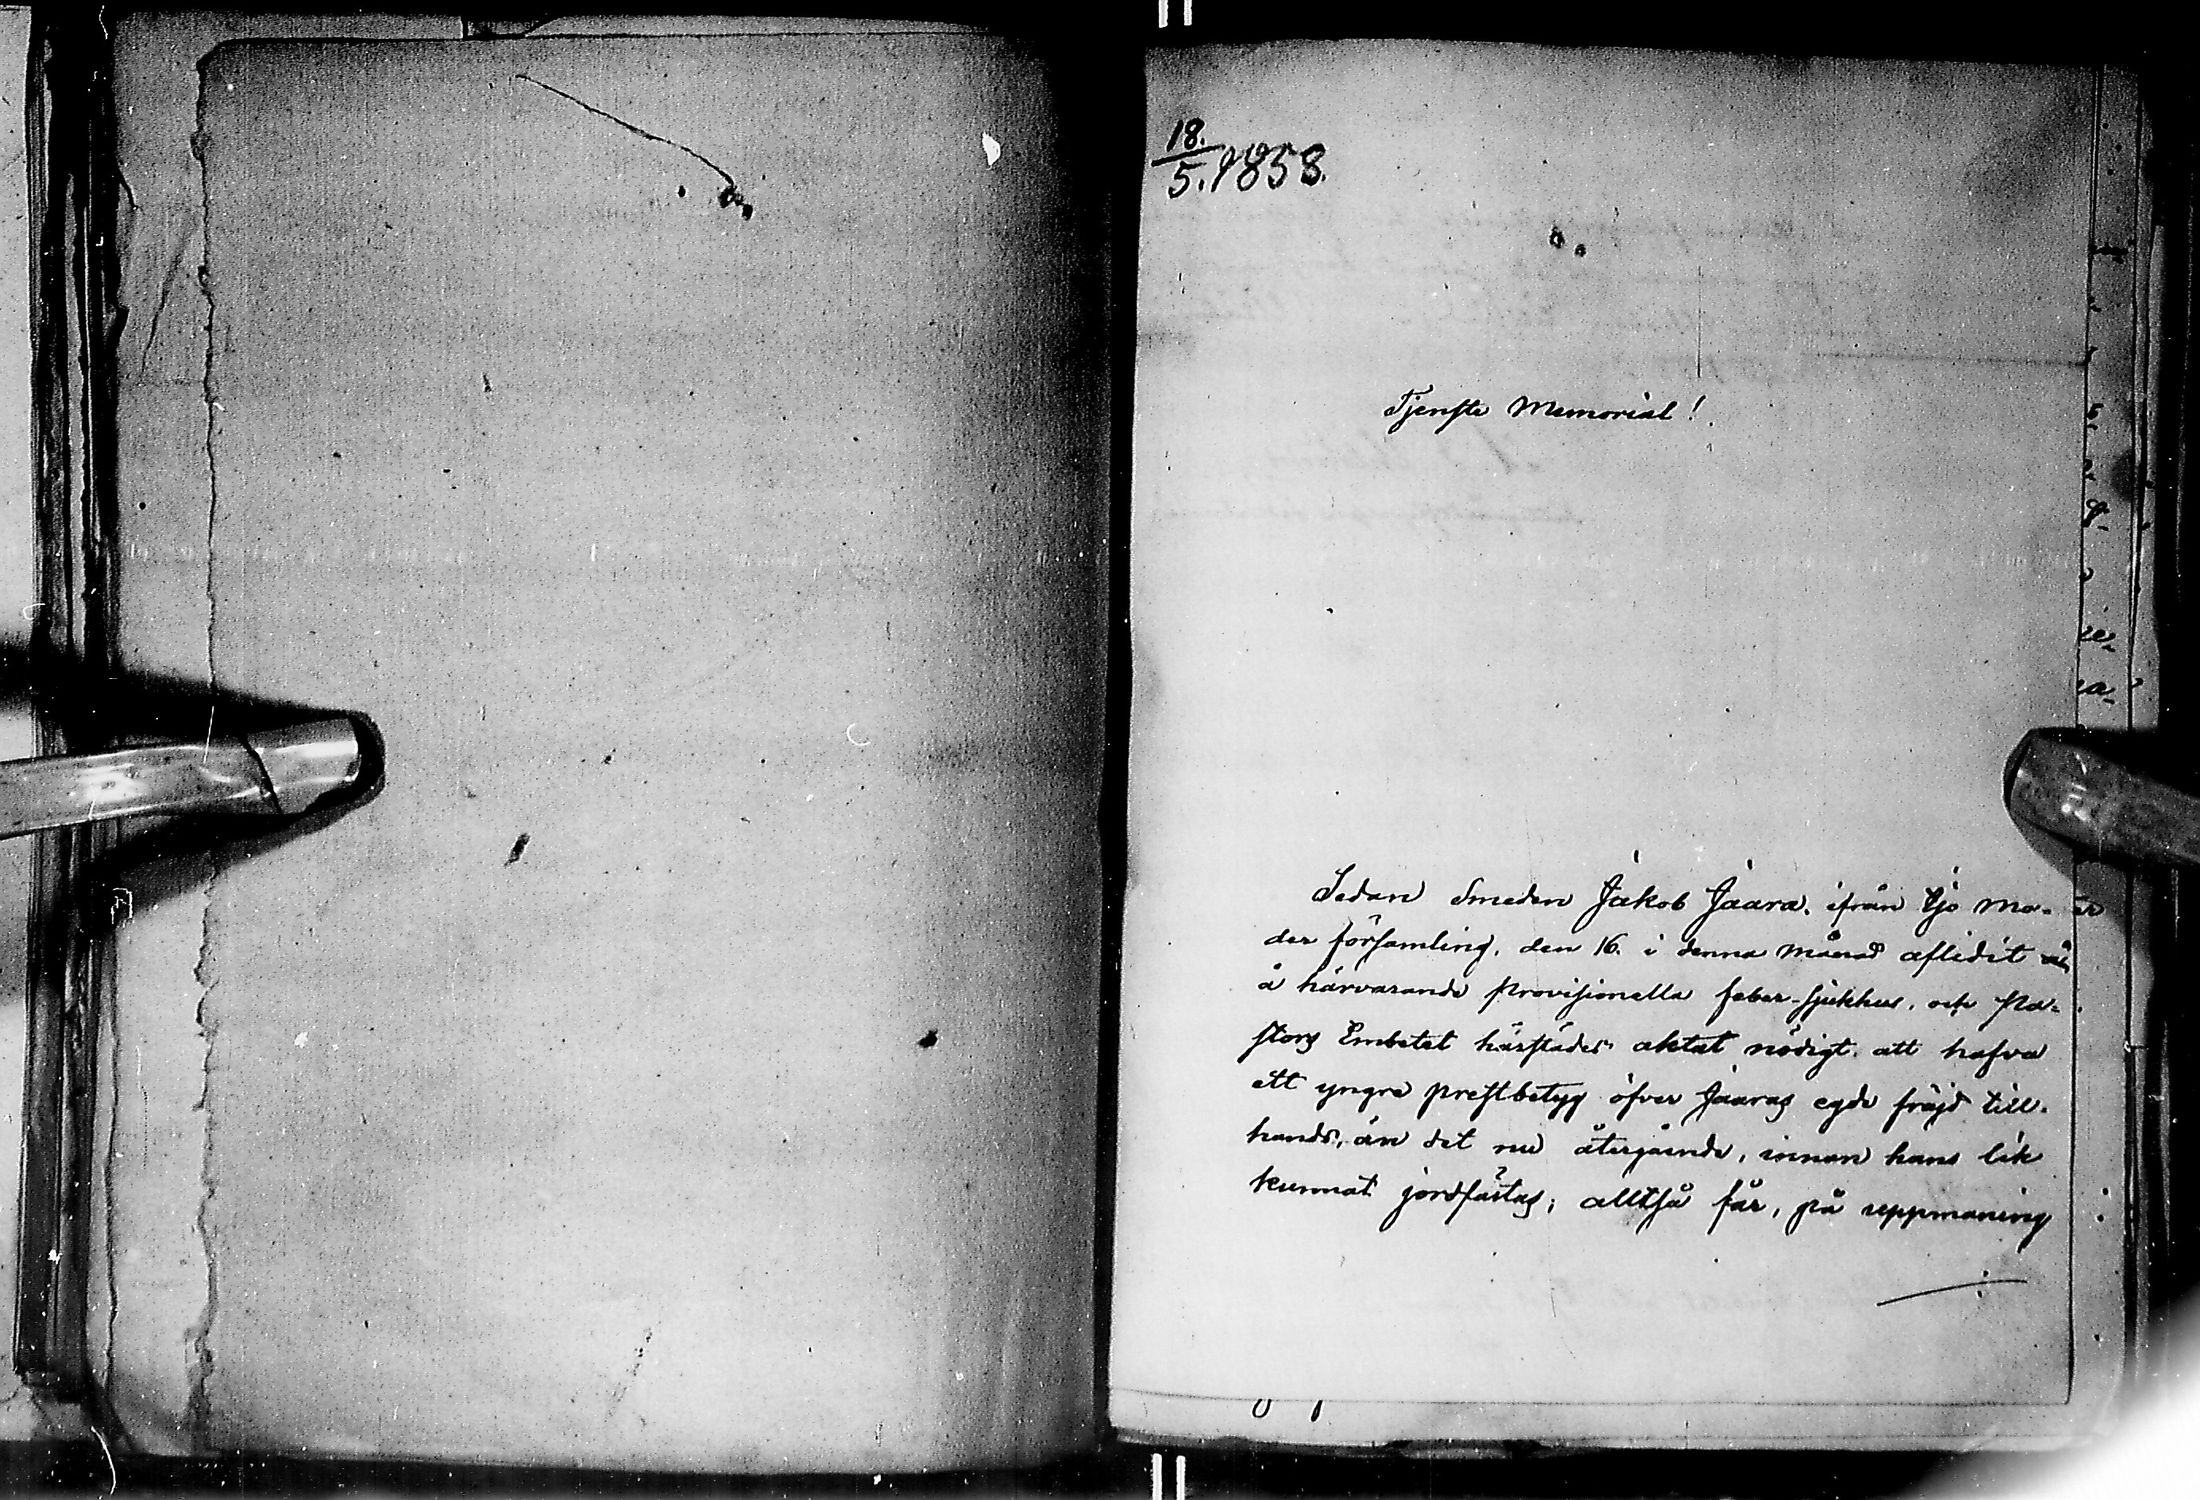 18.
5. 1858.
Tjenste Memorial!
Sedan Smeden Jakob Jaara, ifrån Ijo mo-
der församling, den 16. i denna månad aflidit
å härvarande provisionella feber-sjukhus, och Pa-
stors Embetet härstädes aktat nödigt, att hafva
ett yngre prestbetyg öfver Jaaras egde fräjd till-
hands, än det nu återgående, innan hans lik
kunnat jordfästas; alltså får, på uppmaning